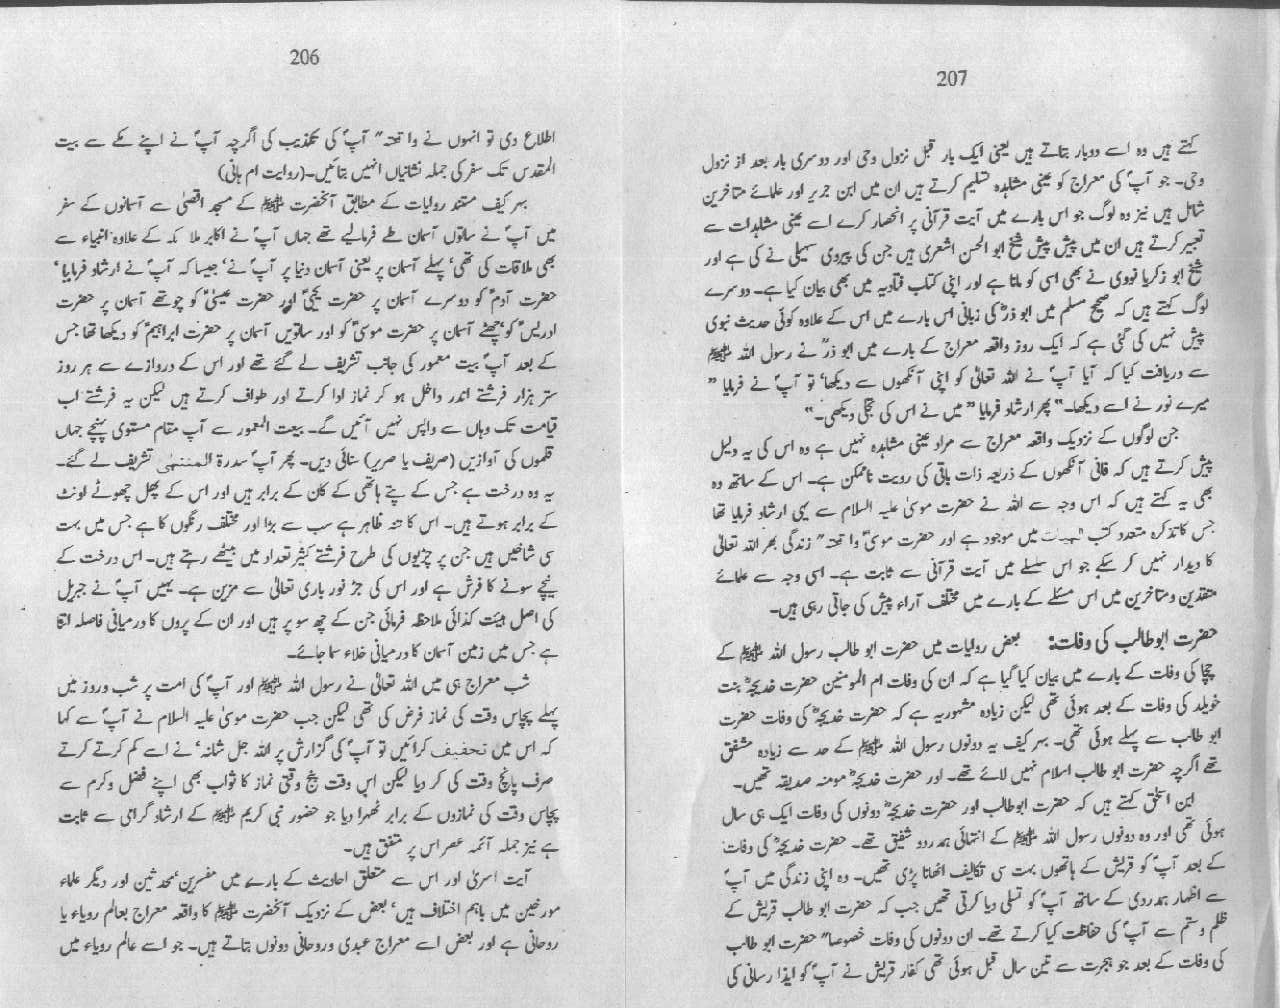 206
اطلاع دی تو انہوں نے واقعتہ" آپؐ کی تکذیب کی اگرچہ آپؐ نے اپنے مکے سے بیت
المقدس تک سفر کی جملہ نشانیاں انہیں بتائیں۔(روایت ام ہانی)
بہر کیف مستند روایات کے مطابق آنحضرت ﷺ کے مسجد اقصیٰ سے آسمانوں کے سفر
میں آپؐ نے ساتوں آسمان طے فرمالیے تھے جہاں آپؐ نے اکابر ملائکہ کے علاوہ انبیاء سے
بھی ملاقات کی تھی‘ پہلے آسمان پر یعنی آسمان دنیا پر آپؐ نے‘ جیسا کہ آپؐ نے ارشاد فرمایا‘
حضرت آدمؑ کو دوسرے آسمان پر حضرت یحییٰؑ اور حضرت عیسیٰؑ کو چوتھے آسمان پر حضرت
ادریسؑ کو‘ چھٹے آسمان پر حضرت موسیٰؑ کو اور ساتویں آسمان پر حضرت ابراہیمؑ کو دیکھا تھا جس
کے بعد آپؐ بیت معمور کی جانب تشریف لے گئے تھے اور اس کے دروازے سے ہر روز
ستر ہزار فرشتے اندر داخل ہو کر نماز ادا کرتے اور طواف کرتے ہیں لیکن یہ فرشتے اب
قیامت تک وہاں سے واپس نہیں آئیں گے۔ بیعت المعمور سے آپ مقام مستوی پہنچے جہاں
قلموں کی آوازیں (صریف یا صریر) سنائی دیں۔ پھر آپؐ سدرۃ المنتہٰی تشریف لے گئے۔
یہ وہ درخت ہے جس کے پتے ہاتھی کے کان کے برابر ہیں اور اس کے پھل چھوٹے اونٹ
کے برابر ہوتے ہیں۔ اس کا تنہ ظاہر ہے سب سے بڑا اور مختلف رنگوں کا ہے جس میں بہت
سی شاخیں ہیں جن پر چڑیوں کی طرح فرشتے کثیر تعداد میں بیٹھے رہتے ہیں۔ اس درخت کے
نیچے سونے کا فرش ہے اور اس کی جڑ نور باری تعالیٰ سے مزین ہے۔ یہیں آپؐ نے جبریل
کی اصل ہیئت کذائی ملاحظہ فرمائی جن کے چھ سو پر ہیں اور ان کے پروں کا درمیانی فاصلہ اتنا
ہے جس میں زمین آسمان کا درمیانی خلاء سما جائے۔
شب معراج ہی میں اللہ تعالیٰ نے رسول اللہ ﷺ اور آپؐ کی امت پر شب وروز میں
پہلے پچاس وقت کی نماز فرض کی تھی لیکن جب حضرت موسیٰ علیہ السلام نے آپؐ سے کہا
کہ اس میں تخفیف کرائیں تو آپؐ کی گزارش پر اللہ جل شانہ‘ نے اسے کم کرتے کرتے
صرف پانچ وقت کی کر دیا لیکن اس وقت پنج وقتی نماز کا ثواب بھی اپنے فضل وکرم سے
پچاس وقت کی نمازوں کے برابر ٹھہرا دیا جو حضور نبی کریم ﷺ کے ارشاد گرامی سے ثابت
ہے نیز جملہ آئمہ عصر اس پر متفق ہیں۔
آیت اسریٰ اور اس سے متعلق احادیث کے بارے میں مفسرین‘ محدثین اور دیگر علماء
مورخین میں باہم اختلاف ہیں‘ بعض کے نزدیک آنحضرت ﷺ کا واقعہ معراج بعالم رویاء یا
روحانی ہے اور بعض اسے معراج عبدی وروحانی دونوں بتاتے ہیں۔ جو اسے عالم رویاء میں
207
کہتے ہیں وہ اسے دوبار بتاتے ہیں یعنی ایک بار قبل نزول وحی اور دوسری بار بعد از نزول
وحی۔ جو آپؐ کی معراج کو عینی مشاہدہ تسلیم کرتے ہیں ان میں ابن جریر اور علمائے متاخرین
شامل ہیں نیز وہ لوگ جو اس بارے میں آیت قرآنی پر انحصار کرے اسے عینی مشاہدات سے
تعبیر کرتے ہیں ان میں پیش پیش شیخ ابو الحسن اشعری ہیں جن کی پیروی سہیلی نے کی ہے اور
شیخ ابو زکریا نووی نے بھی اسی کو مانا ہے اور اپنی کتاب فتادیہ میں بھی بیان کیا ہے۔ دوسرے
لوگ کہتے ہیں کہ صحیح مسلم میں ابو ذرؓ کی زبانی اس بارے میں اس کے علاوہ کوئی حدیث نبوی
پیش نہیں کی گئی ہے کہ ایک روز واقعہ معراج کے بارے میں ابو ذرؓ نے رسول اللہ ﷺ
سے دریافت کیا کہ آیا آپؐ نے اللہ تعالیٰ کو اپنی آنکھوں سے دیکھا‘ تو آپؐ نے فرمایا "
میرے نور نے اسے دیکھا۔" پھر ارشاد فرمایا "میں نے اس کی تجلی دیکھی۔"
جن لوگوں کے نزدیک واقعہ معراج سے مراد عینی مشاہدہ نہیں ہے وہ اس کی یہ دلیل
پیش کرتے ہیں کہ فانی آنکھوں کے ذریعہ ذات باقی کی رویت ناممکن ہے۔ اس کے ساتھ وہ
بھی یہ کہتے ہیں کہ اس وجہ سے اللہ نے حضرت موسیٰ علیہ السلام سے یہی ارشاد فرمایا تھا
جس کا تذکرہ متعدد کتب الٰہیات میں موجود ہے اور حضرت موسیٰؑ واقعتہ" زندگی بھر اللہ تعالیٰ
کا دیدار نہیں کر سکے جو اس سلسلے میں آیت قرآنی سے ثابت ہے۔ اسی وجہ سے علمائے
متقدین ومتاخرین میں اس مسئلے کے بارے میں مختلف آراء پیش کی جاتی رہی ہیں۔
حضرت ابو طالب کی وفات: بعض روایات میں حضرت ابو طالب رسول اللہ ﷺ کے
چچا کی وفات کے بارے میں بیان کیا گیا ہے کہ ان کی وفات ام المومنین حضرت خدیجہؓ بنت
خویلد کی وفات کے بعد ہوئی تھی لیکن زیادہ مشہور یہ ہے کہ حضرت خدیجہؓ کی وفات حضرت
ابو طالب سے پہلے ہوئی تھی۔ بہر کیف یہ دونوں رسول اللہ ﷺ کے حد سے زیادہ مشفق
تھے اگرچہ حضرت ابو طالب اسلام نہیں لائے تھے۔ اور حضرت خدیجہؓ مومنہ صدیقہ تھیں۔
ابن الحٰق کہتے ہیں کہ حضرت ابوطالب اور حضرت خدیجہؓ دونوں کی وفات ایک ہی سال
ہوئی تھی اور وہ دونوں رسول اللہ ﷺ کے انتہائی ہمدرد و شفیق تھے۔ حضرت خدیجہؓ کی وفات
کے بعد آپؐ کو قریش کے ہاتھوں بہت سی تکالیف اٹھانا پڑی تھیں۔ وہ اپنی زندگی میں آپؐ
سے اظہار ہمدردی کے ساتھ آپؐ کو تسلی دیا کرتی تھیں جب کہ حضرت ابو طالب قریش کے
ظلم و ستم سے آپؐ کی حفاظت کیا کرتے تھے۔ ان دونوں کی وفات خصوصا" حضرت ابو طالب
کی وفات کے بعد جو ہجرت سے تین سال قبل ہوئی تھی کفار قریش نے آپؐ کو ایذا رسانی کی